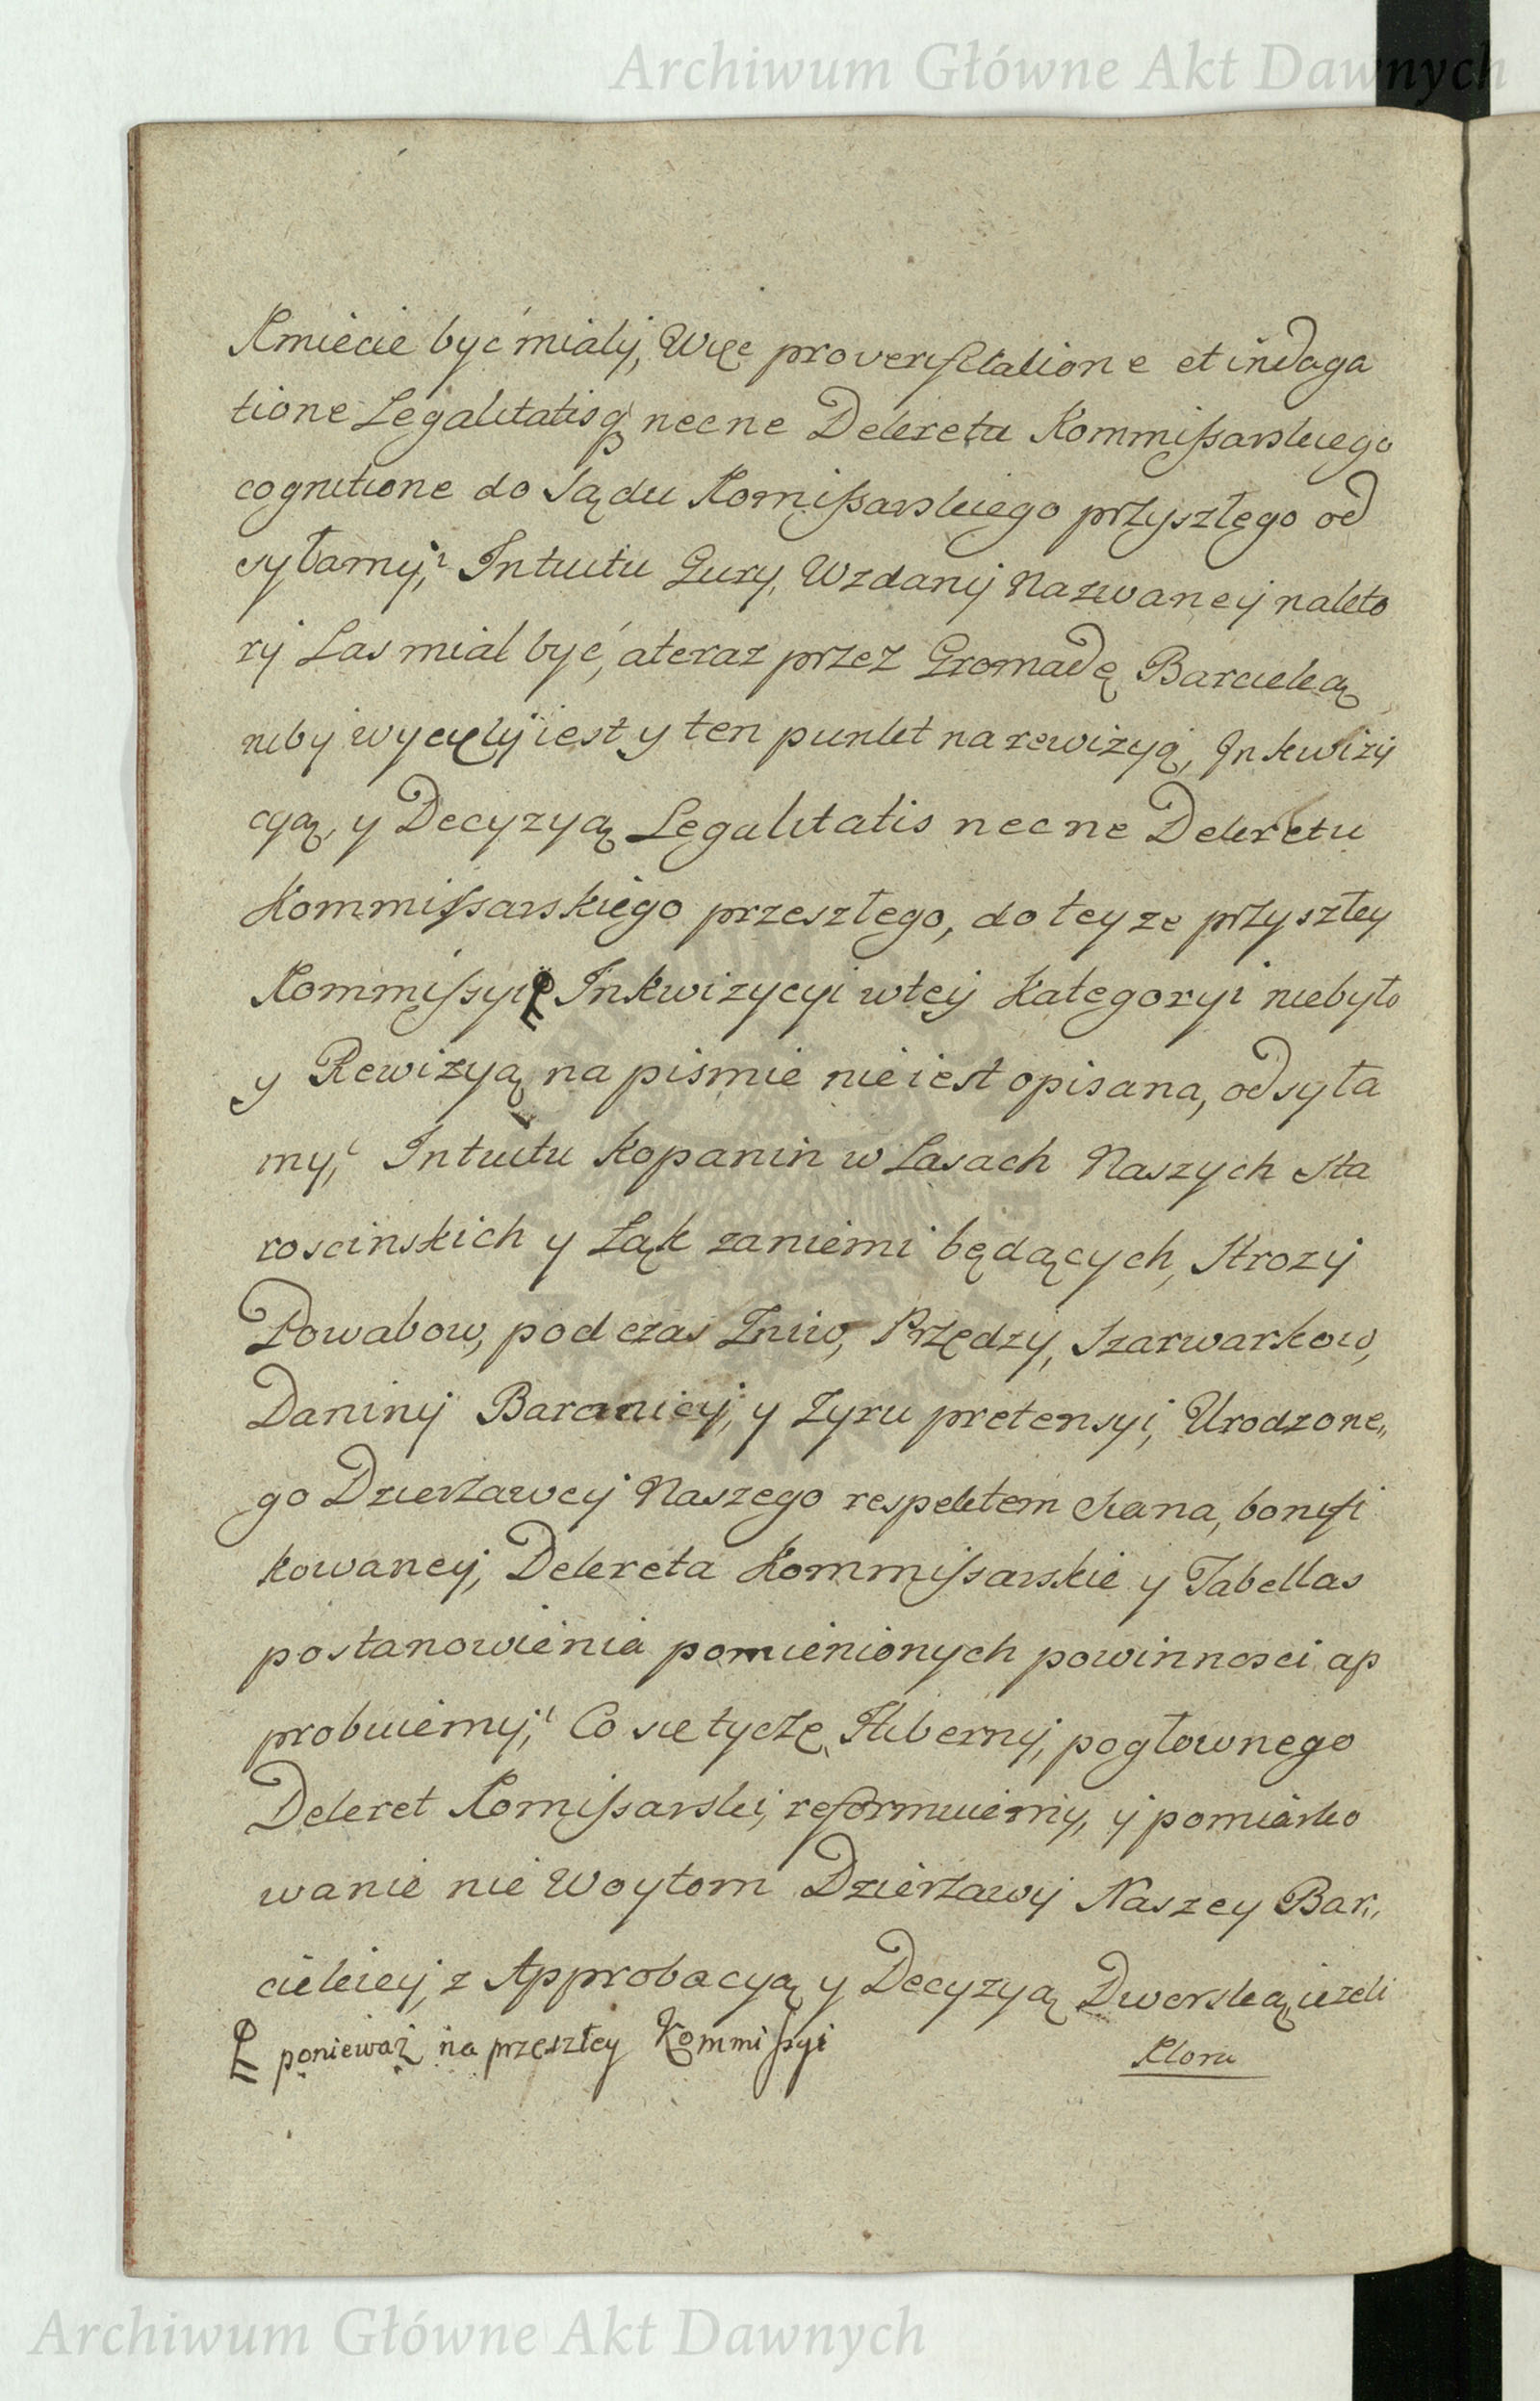 Archiwum Główne Akt Dawnych
Kmiecie być mialy, Więc pro verificatione et indaga
tione Legalitatisq; necne Dekretu Kommissarskiego
cognitione do Sądu Komissarskiego przyszłego od
syłamy; Intuitu Gury, Wzdany Nazwaney na kto
ry Las mial być, a teraz przez Gromadę Barcicką
niby wycięty iest y ten punkt na rewizyą, Inkwizy
cyą, y Decyzyą Legalitatis necne Dekretu
Kommissarskiego przeszłego, do teyze przyszłey
Kommissyi Inkwizycyi w tey Kategoryi niebyło
y Rewizyą na pismie nie iest opisana, odsyła
my; Intuitu Kopanin w Lasach Naszych Sta
roscinskich y Łąk za niemi będących, Strozy
Powabow, podczas Zniw, Przędzy, Szarwarkow,
Daniny Baraniey, y Zyru pretensyi, Urodzone„
go Dzierzawcy Naszego respektem Siana, bonifi
kowaney, Dekreta Kommissarskie y Tabellas
postanowienia pomienionych powinnosci ap
probuiemy; Co sie tycze Hiberny, pogłownego
Dekret Komissarski, reformuiemy, y pomiarko
wanie nie Woytom Dzierzawy Naszey Bar„
cickiey, z Approbacyą y Decyzyą Dworską, iezeli
ponieważ na przeszłey Kommissyi
Klora
Archiwum Główne Akt Dawnych